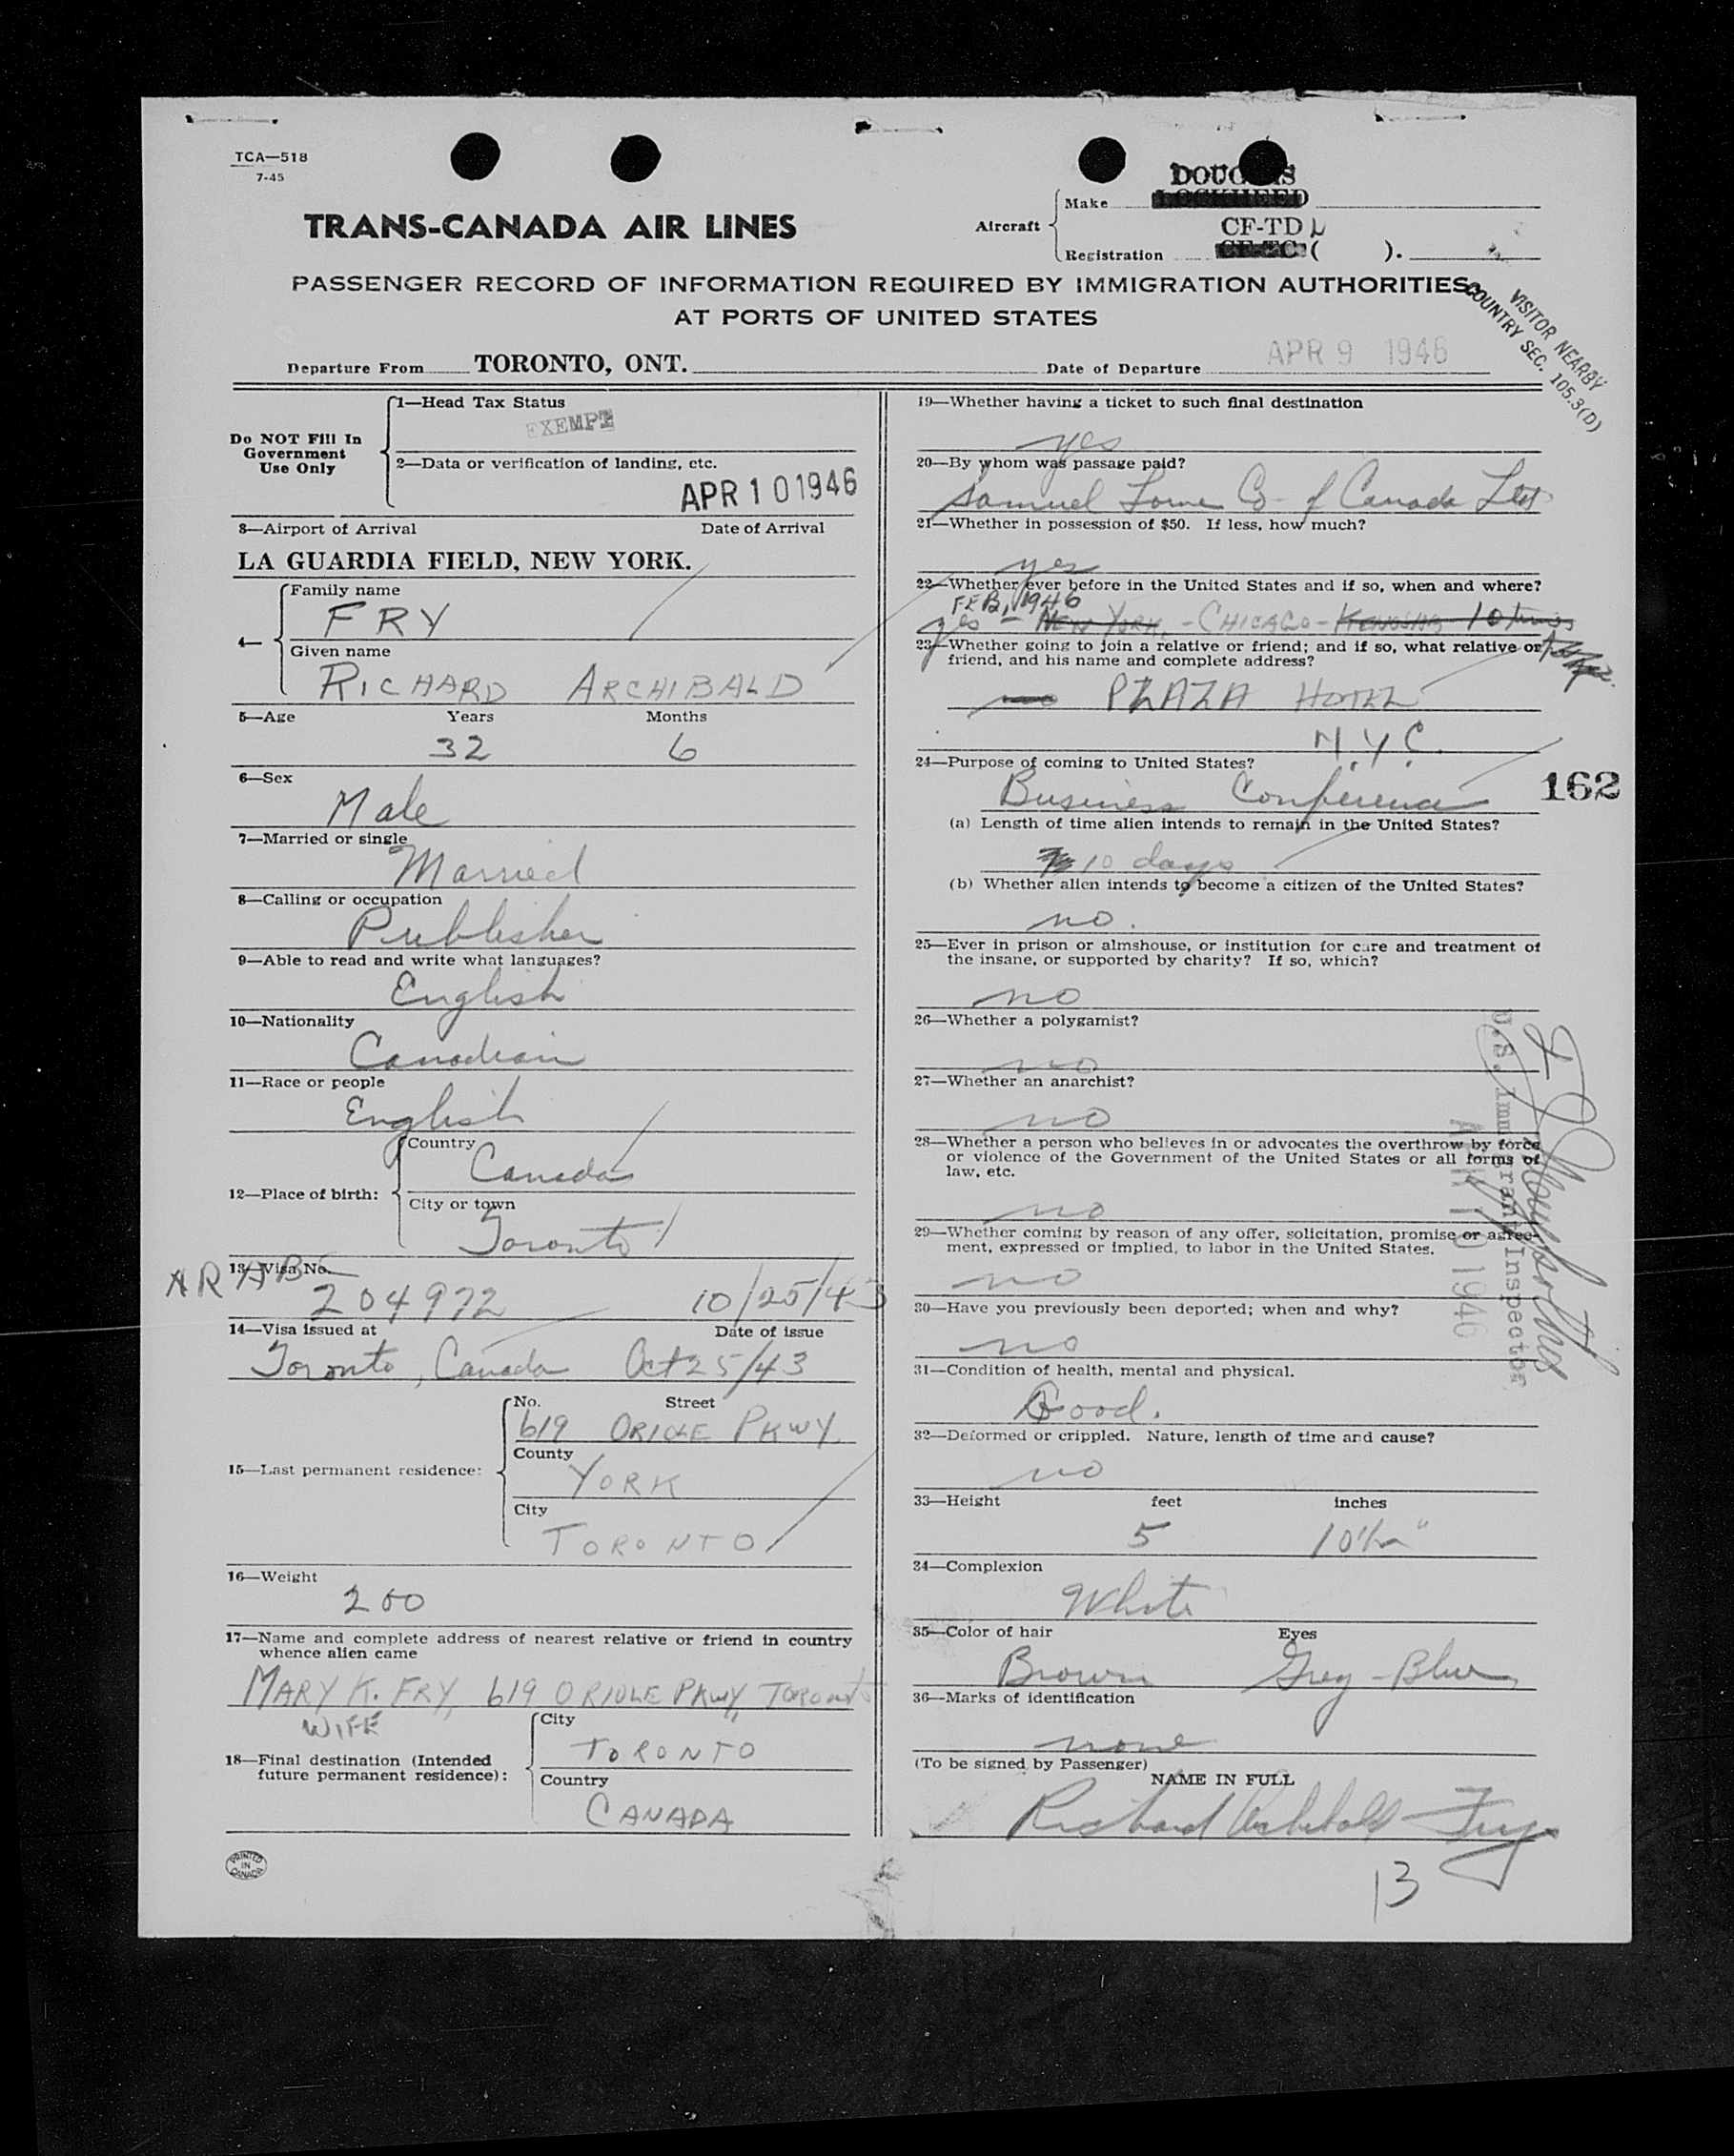 TCA—518
7-45
DOUGLAS
LOCKHEED
Make
TRANS-CANADA AIR LINES
Aircraft
CF-TD L
CF-TC ( ).
Registration
PASSENGER RECORD OF INFORMATION REQUIRED BY IMMIGRATION AUTHORITIES
AT PORTS OF UNITED STATES
VISITOR NEARBY
COUNTRY SEC. 105.3(D)
Departure From TORONTO, ONT.
Date of Departure APR 9 1946
1—Head Tax Status
EXEMPT
Do NOT Fill In
Government
Use Only
2—Data or verification of landing, etc.
APR 10 1946
3—Airport of Arrival Date of Arrival
LA GUARDIA FIELD, NEW YORK.
4—
Family name
FRY
Given name
RICHARD ARCHIBALD
5—Age Years Months
32 6
6—Sex
Male
7—Married or single
Married
8—Calling or occupation
Publisher
9—Able to read and write what languages?
English
10—Nationality
Canadian
11—Race or people
English
12—Place of birth:
Country
Canada
City or town
Toronto
13—Visa No.
ARAB
204972 10/25/43
14—Visa issued at Date of issue
Toronto, Canada Oct 25/43
15—Last permanent residence:
No. Street
619 ORIOLE PKWY.
County
YORK
City
TORONTO
16—Weight
200
17—Name and complete address of nearest relative or friend in country
whence alien came
MARY K. FRY, 619 ORIOLE PKWY, TORONTO
WIFE
18—Final destination (Intended
future permanent residence):
City
TORONTO
Country
CANADA
PRINTED
IN
CANADA
19—Whether having a ticket to such final destination
yes
20—By whom was passage paid?
Samuel Lowe Co of Canada Ltd
21—Whether in possession of $50. If less, how much?
yes
22—Whether ever before in the United States and if so, when and where?
FEB, 1946
yes – NEW YORK, – CHICAGO – KENOSHA 10 times
23—Whether going to join a relative or friend; and if so, what relative or
friend, and his name and complete address?
no PLAZA HOTEL
N.Y.C.
24—Purpose of coming to United States?
Business Conference
162
(a) Length of time alien intends to remain in the United States?
10 days
(b) Whether alien intends to become a citizen of the United States?
no.
25—Ever in prison or almshouse, or institution for care and treatment of
the insane, or supported by charity? If so, which?
no
26—Whether a polygamist?
no
27—Whether an anarchist?
no
28—Whether a person who believes in or advocates the overthrow by force
or violence of the Government of the United States or all forms of
law, etc.
no
29—Whether coming by reason of any offer, solicitation, promise or agree-
ment, expressed or implied, to labor in the United States.
no
30—Have you previously been deported; when and why?
no
U.S. Immigrant Inspector
APR 10 1946
31—Condition of health, mental and physical.
Good.
32—Deformed or crippled. Nature, length of time and cause?
no
33—Height feet inches
5 10½"
34—Complexion
White
35—Color of hair Eyes
Brown Grey-Blue
36—Marks of identification
none
(To be signed by Passenger)
NAME IN FULL
Richard Archibald Fry
13